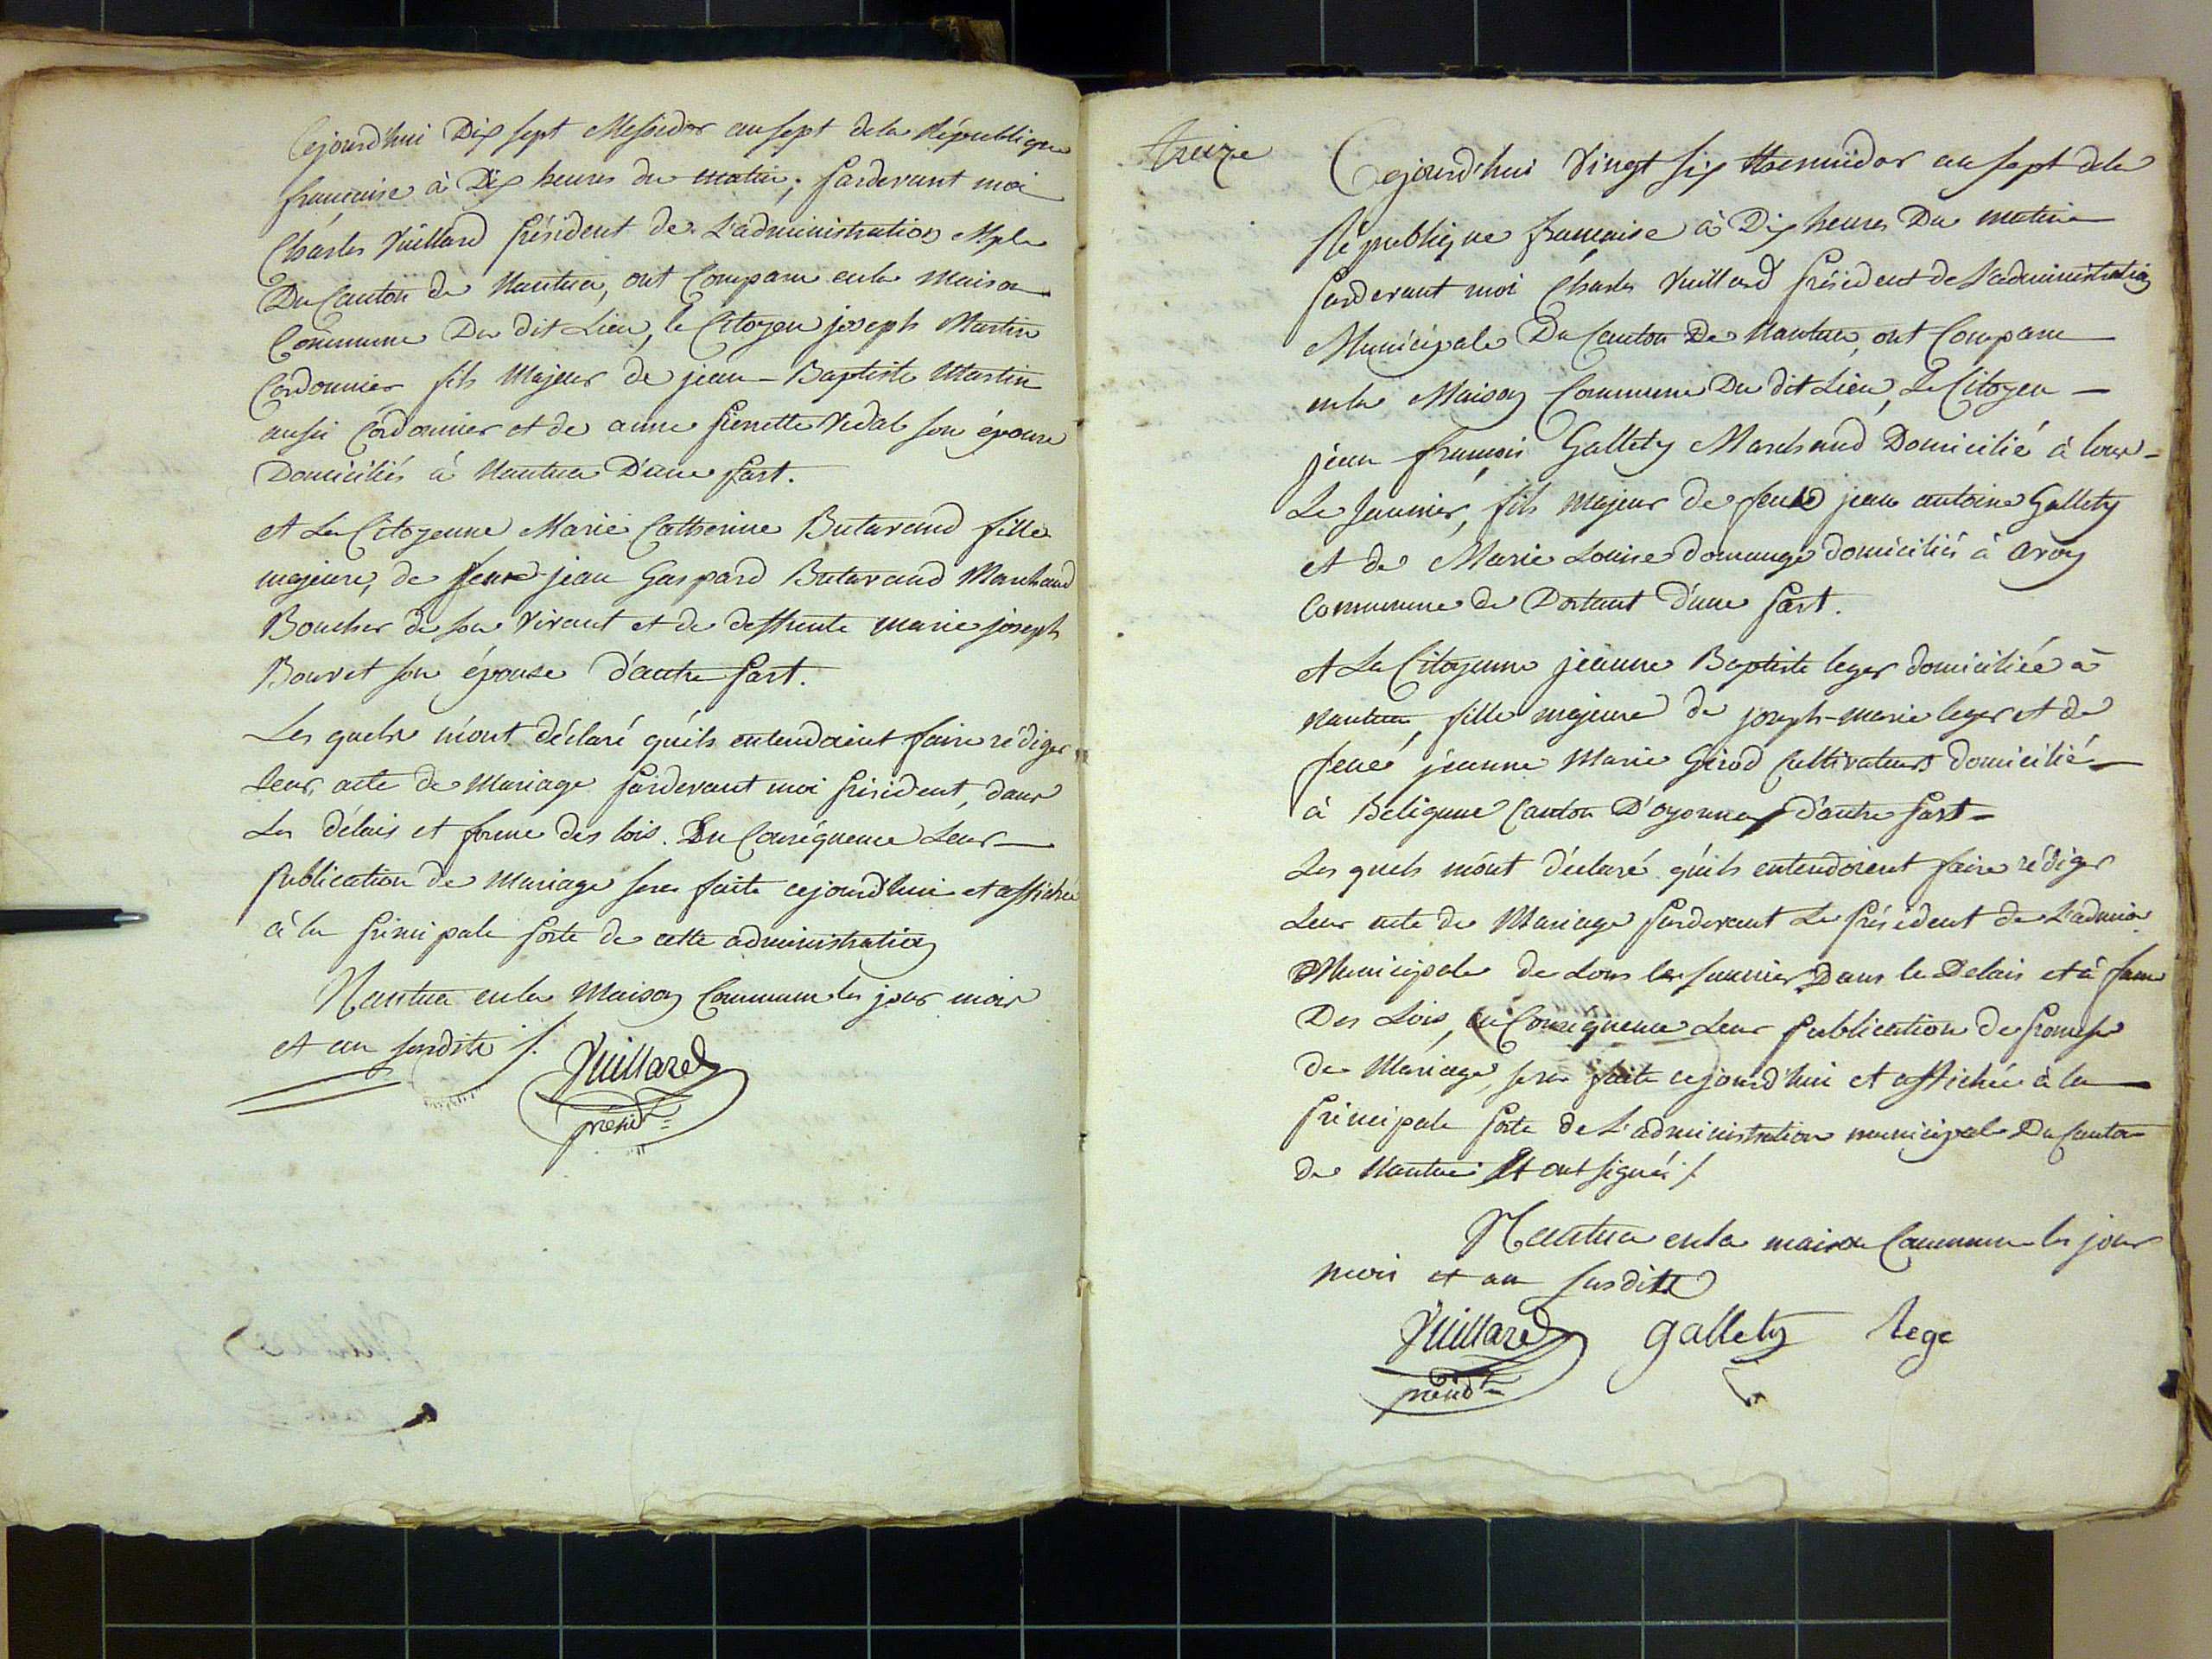 Cejourd'hui Dix sept Messidor an sept dela République
française à Dix heures du matin; pardevant moi
Charles Vuillard président de L'administration Mple
Du Canton de Nantua, ont Comparu enla Maison
Commune Du dit Lieu, le Citoyen joseph Martin
Cordonnier fils Majeur de jean-Baptiste Martin
aussi Cordonnier et de anne pierrette Vidal son épouse
Domiciliés à Nantua D'une part.
et La Citoyenne Marie Catherine Butavand fille
majeure, de feu jean Gaspard Butavand Marchand
Boucher de son Vivant et de deffunte marie joseph
Bouvet son épouse d'autre part.
Les quels m'ont déclaré qu'ils entendoient faire rédiger
Leur acte de Mariage pardevant moi président, dans
Les délais et forme des lois. En Conséquence Leur
publication de Mariage sera faite cejourd'hui et affichée
à la principale porte de cette administration
Nantua enla Maison Commune les jour mois
et an susdits /.
Vuillard
présidt
treize
Cejourd'hui Vingt six thermidor an sept dela
République française à Dix heures Du matin
pardevant moi Charles Vuillard président de L'administration
Municipale Du Canton De Nantua, ont Comparu
enla Maison Commune Du dit Lieu, Le Citoyen
jean françois Gallety Marchand Domicilié à Lons-
Le Saunier, fils majeur de feu jean antoine Gallety
et de Marie Louise domange domiciliés à
Commune de Dortant D'une part.
et La Citoyenne jeanne Baptiste leger domiciliée à
Nantua, fille majeure de joseph-marie leger et de
feue jeanne Marie Girod Cultivateurs domicilié
à Béligneux Canton D'oyonnax d'autre part
Les quels m'ont déclaré qu'ils entendoient faire rédiger
Leur acte de Mariage pardevant Le président de L'admion
Municipale de Lons le saunier Dans le Delais et à forme
Des Lois, en Conséquence Leur publication de promesse
de Mariage, sera faite cejourd'hui et affichée à la
principale porte de L'administration municipale Du Canton
de Nantua Et ont signés /.
Nantua enla maison Commune les jour
mois et an susdits
Vuillard gallety lege
présidt